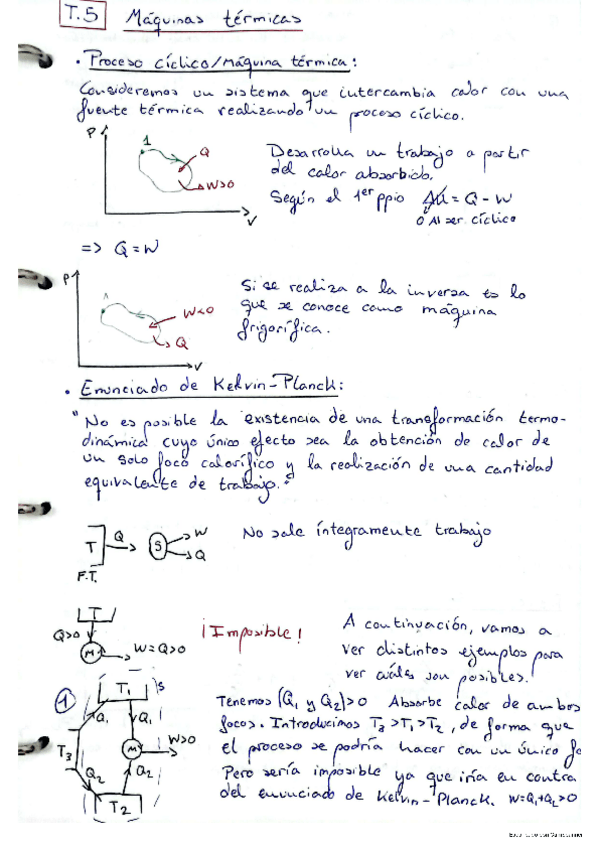 T.5 Máquinas térmicas
• Proceso cíclico/máquina térmica:
Consideremos un sistema que intercambia calor con una
fuente térmica realizando un proceso cíclico.
P
1
Q
W>0
V
Desarrolla un trabajo a partir
del calor absorbido.
Según el 1er ppio ΔU = Q - W
0 Al ser cíclico
=> Q = W
P
1
W<0
Q
V
Si se realiza a la inversa es lo
que se conoce como máquina
frigorífica.
• Enunciado de Kelvin-Planck:
"No es posible la existencia de una transformación termo-
dinámica cuyo único efecto sea la obtención de calor de
un solo foco calorífico y la realización de una cantidad
equivalente de trabajo."
T Q S W
Q
F.T.
No sale íntegramente trabajo
T
Q>0
M W=Q>0
¡Imposible!
A continuación, vamos a
ver distintos ejemplos para
ver cuáles son posibles.
1
T1 S
Q1 Q1
T3 M W>0
Q2 Q2
T2
Tenemos (Q1 y Q2)>0 Absorbe calor de ambos
focos. Introducimos T3>T1>T2, de forma que
el proceso se podría hacer con un único fo
Pero sería imposible ya que iría en contra
del enunciado de Kelvin-Planck. W=Q1+Q2>0